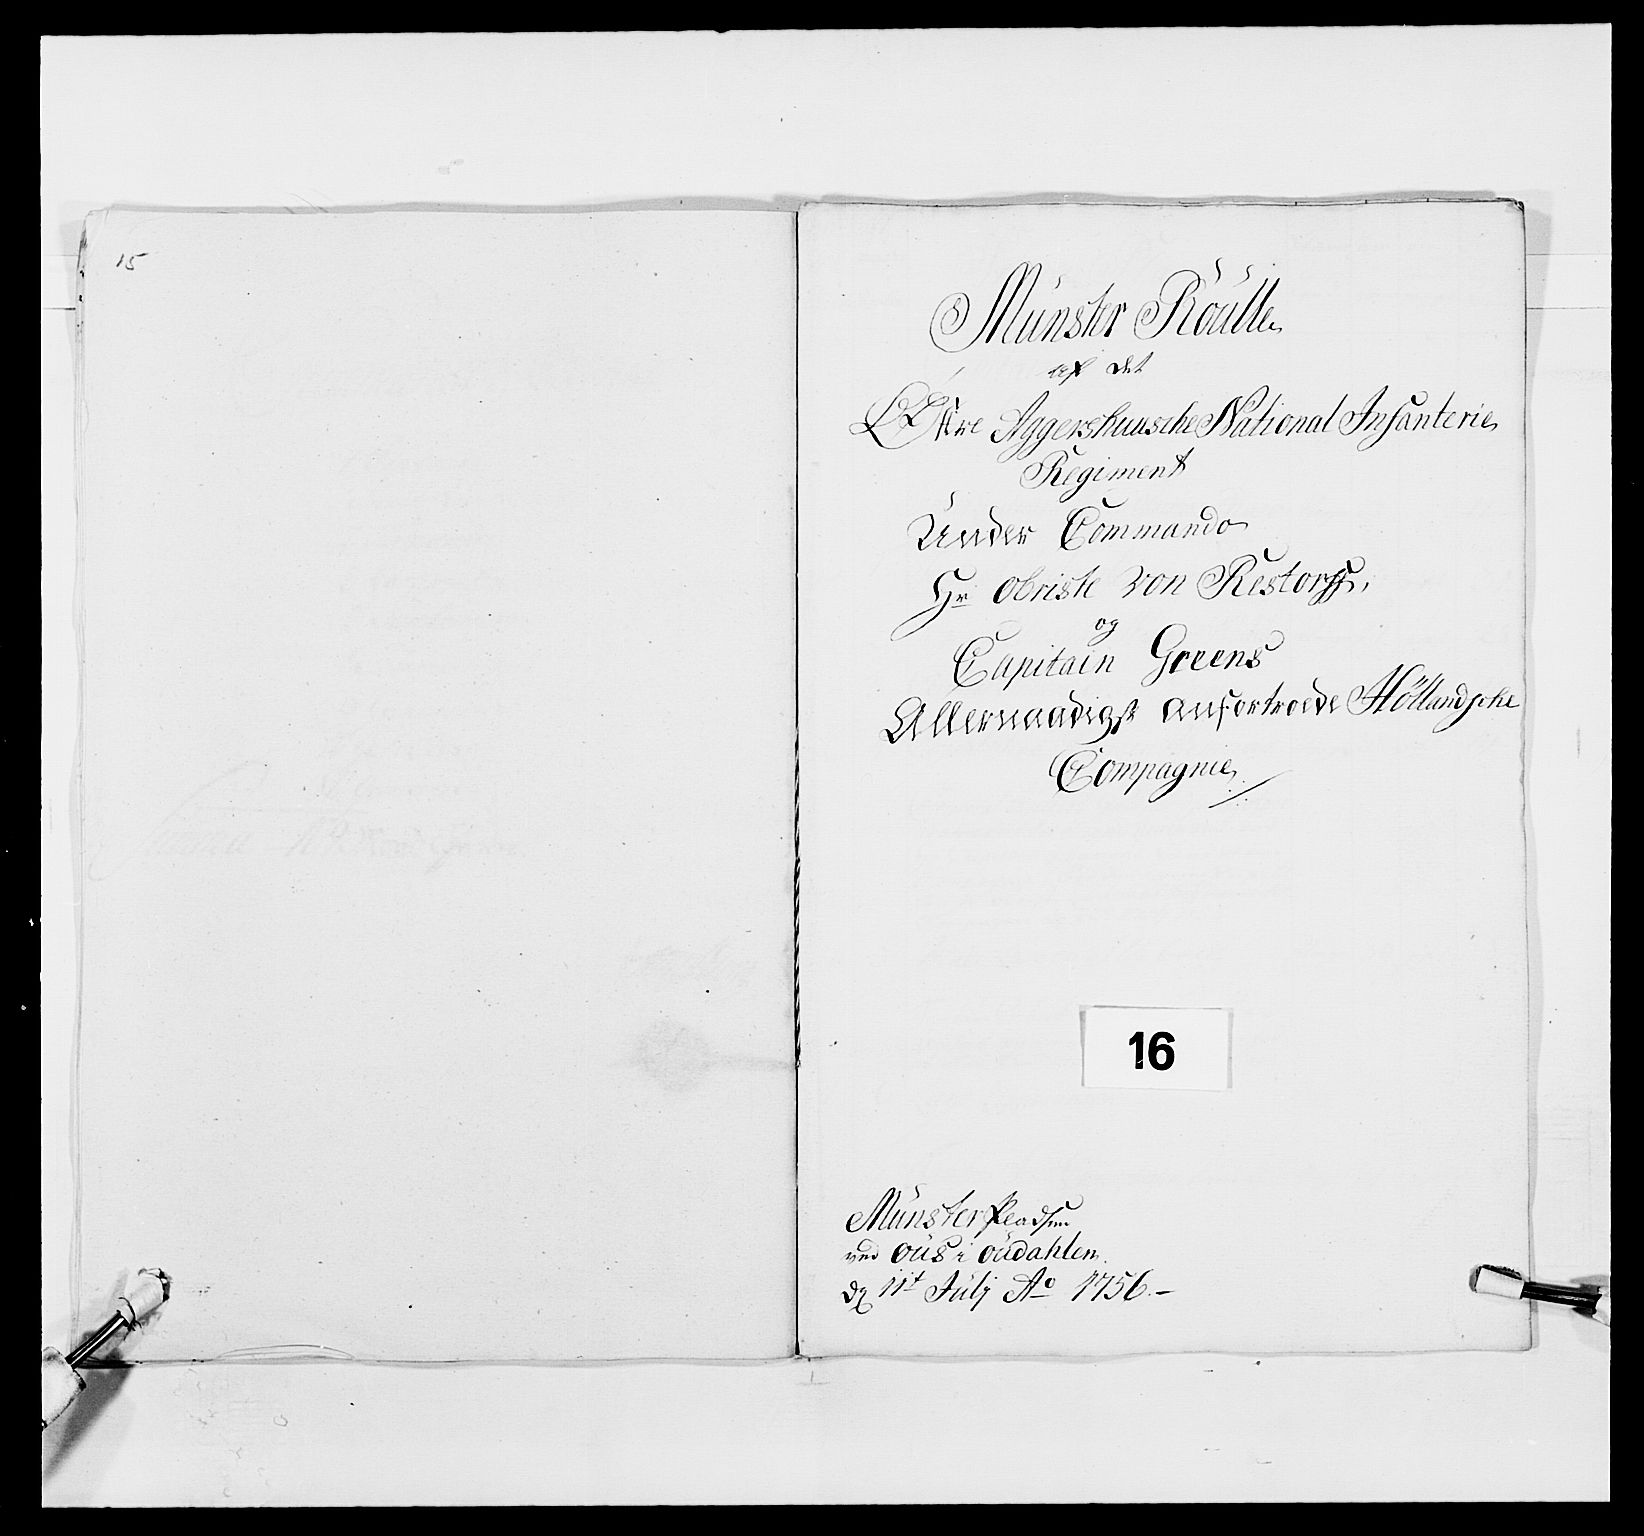 15
Münster Roülle
af det
1ste Aggershuusche National Infanterie
Regiment
Under Commando
Hr Obriste von Restorff,
og
Capitain Greens
Allernaadigst anfortroede Höllandsche
Compagnie
16
Münster Pladsen
ved oüs i oüdahlen
d 11t Julj Ao 1756.-